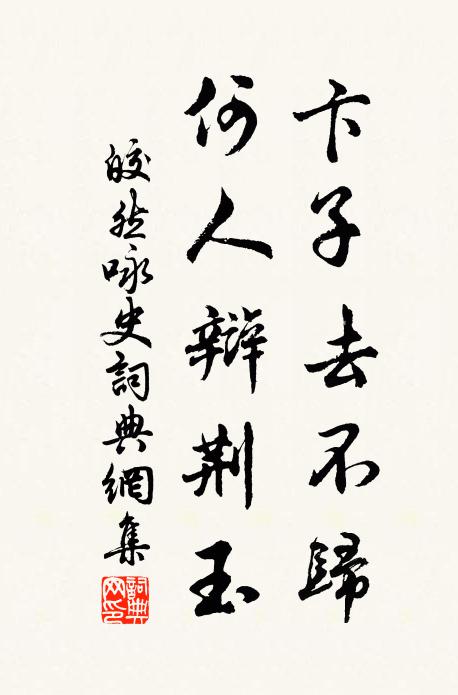 卞子去不歸
何人辯荆玉
皎然咏史詞典網集
詞典网印